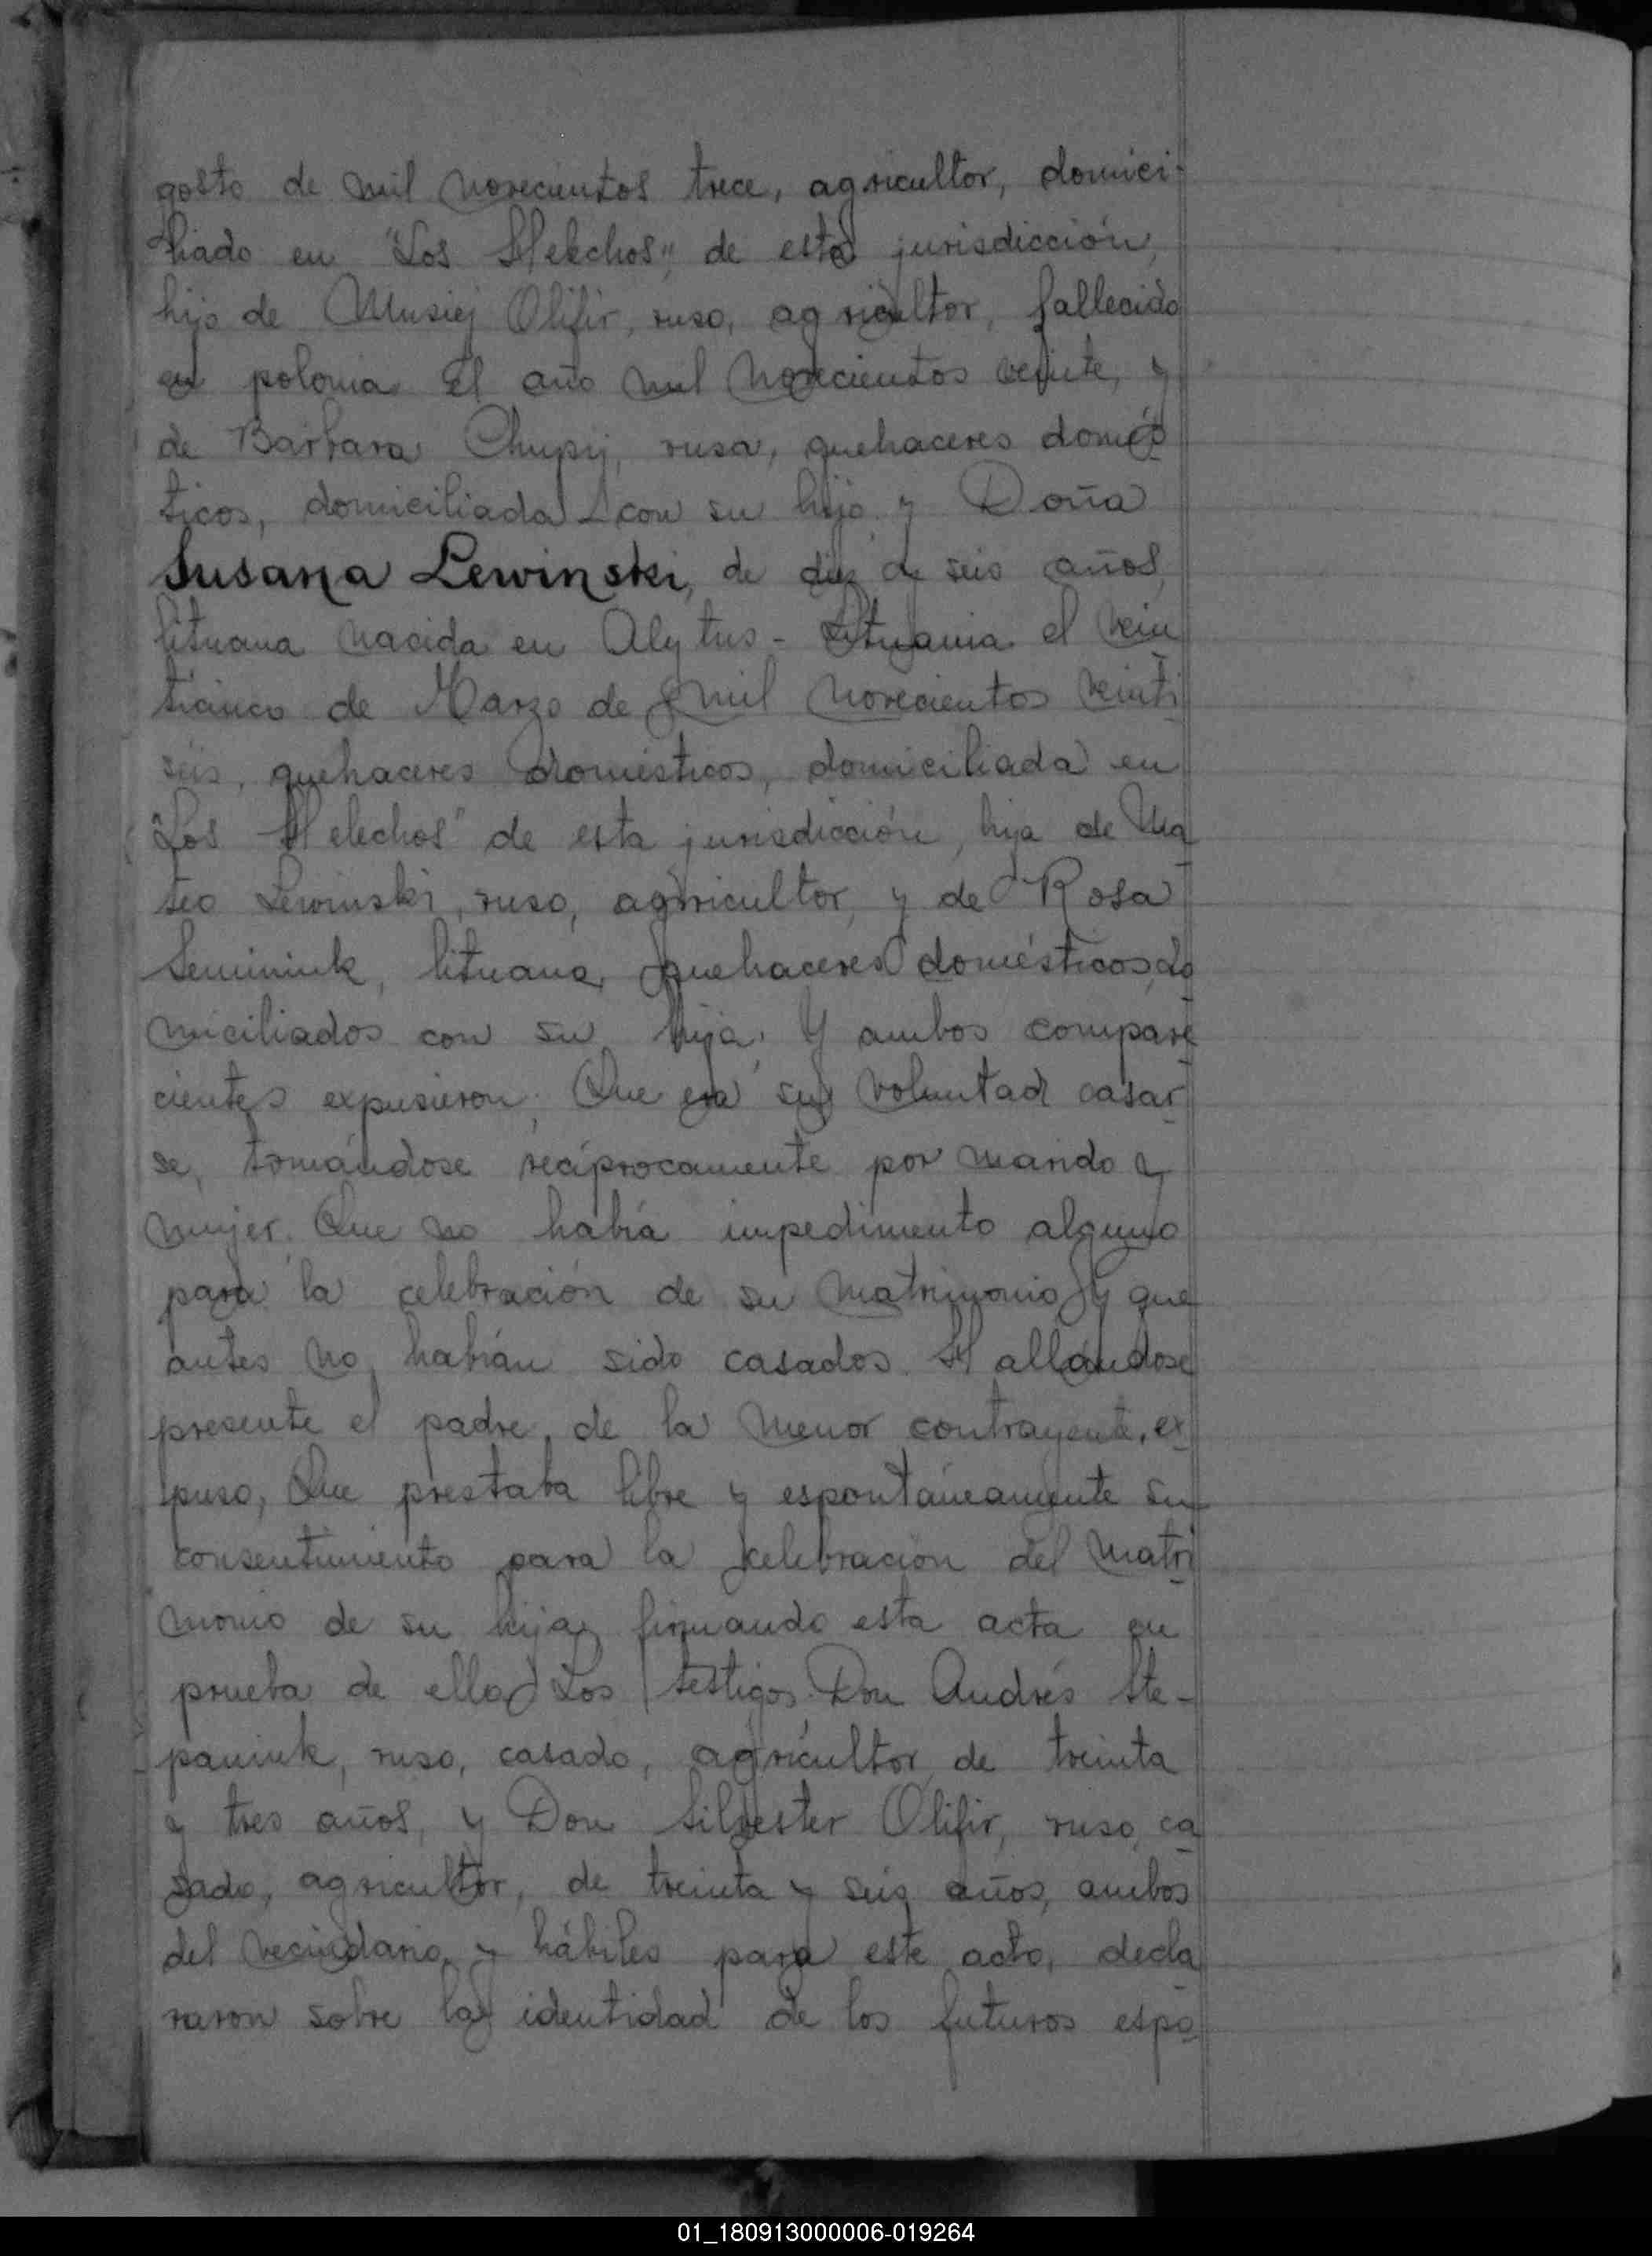 gosto de mil novecientos trece, agricultor, domici-
liado en "Los Helechos", de esta jurisdicción,
hijo de Musiej Olifir, ruso, agricultor, fallecido
en polonia el año mil novecientos veinte, y
de Barbara Chupij, rusa, quehaceres domés
ticos, domiciliada con su hijo y Doña
Susana Lewinski, de diez y seis años,
lituana nacida en Alytus - Lituania el vein
ticinco de Marzo de mil novecientos veinti
seis, quehaceres domésticos, domiciliada en
"Los Helechos" de esta jurisdicción, hija de Ma
teo Lewinski, ruso, agricultor, y de Rosa
Seminiuk, lituana, quehaceres domésticos, do
miciliados con su hija. Y ambos compare
cientes expusieron; Que era su voluntad casar
se, tomándose recíprocamente por marido y
mujer. Que no había impedimento alguno
para la celebración de su matrimonio y que
antes no habían sido casados. Hallándose
presente el padre de la menor contrayente, ex
puso, Que prestaba libre y espontáneamente su
consentimiento para la celebración del matri
monio de su hija firmando esta acta en
prueba de ello. Los testigos Don Andrés Ste-
paniuk, ruso, casado, agricultor, de treinta
y tres años, y Don Silvester Olifir, ruso, ca
sado, agricultor, de treinta y seis años, ambos
del vecindario, y hábiles para este acto, decla
raron sobre la identidad de los futuros espo
01_180913000006-019264